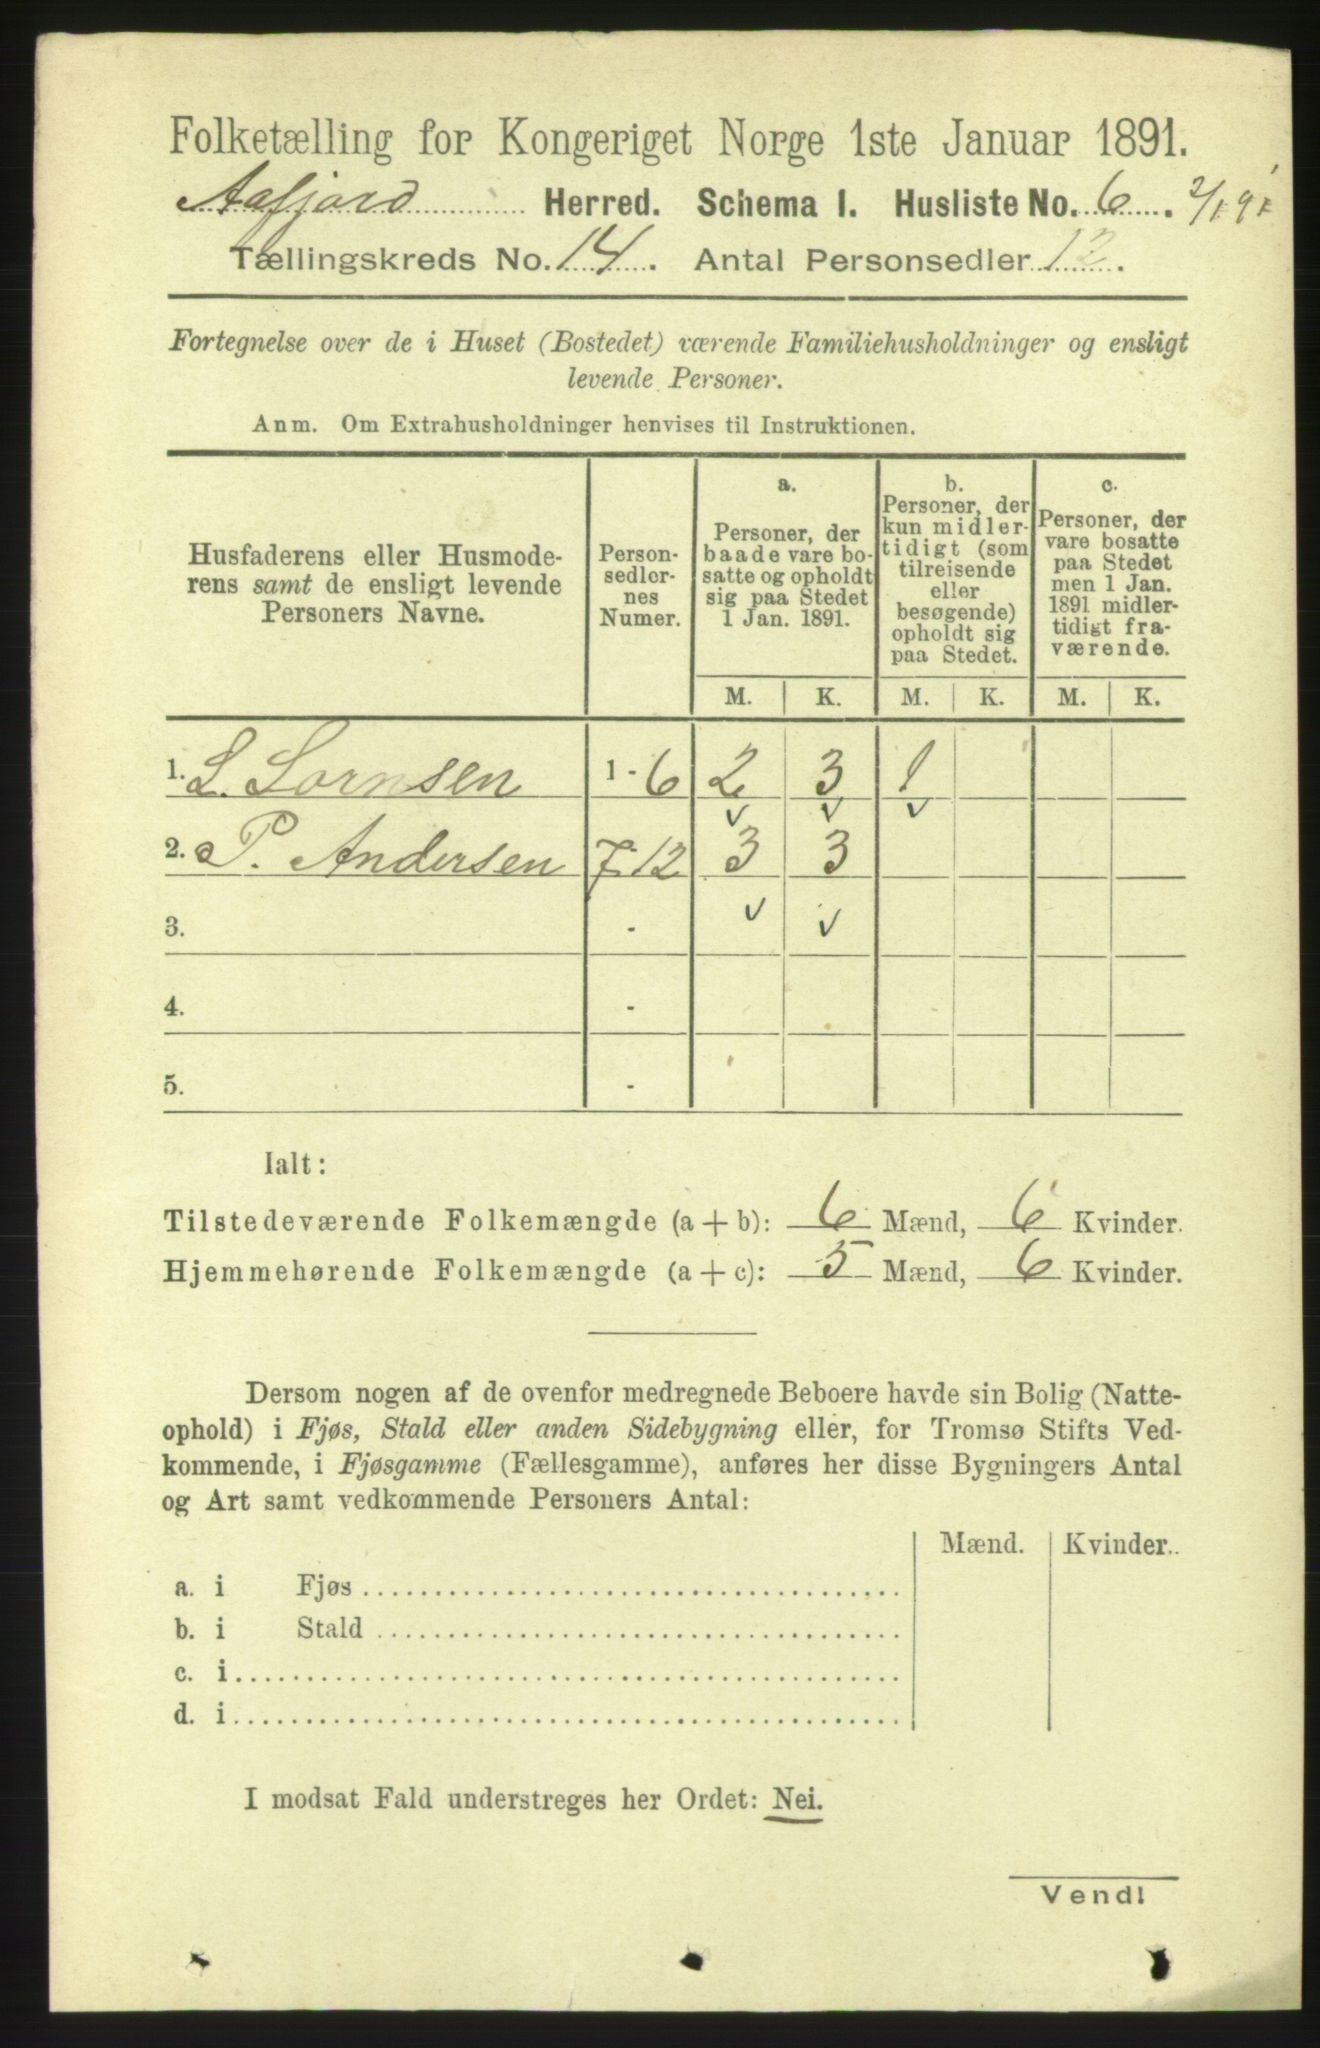 Folketælling for Kongeriget Norge 1ste Januar 1891.
Aafjord Herred. Schema I. Husliste No. 6. 2/1 91
Tællingskreds No. 14. Antal Personsedler 12.
Fortegnelse over de i Huset (Bostedet) værende Familiehusholdninger og ensligt
levende Personer.
Anm. Om Extrahusholdninger henvises til Instruktionen.
Husfaderens eller Husmode-
rens samt de ensligt levende
Personers Navne.
Person-
sedler-
nes
Numer.
a.
Personer, der
baade vare bo-
satte og opholdt
sig paa Stedet
1 Jan. 1891.
b.
Personer, der
kun midler-
tidigt (som
tilreisende
eller
besøgende)
opholdt sig
paa Stedet.
c.
Personer, der
vare bosatte
paa Stedet
men 1 Jan.
1891 midler-
tidigt fra-
værende.
M. K. M. K. M. K.
1. L. Lornsen 1 - 6 2 3 1
2. P. Andersen 7-12 3 3
3. -
4. -
5. -
Ialt:
Tilstedeværende Folkemængde (a + b): 6 Mænd, 6 Kvinder.
Hjemmehørende Folkemængde (a + c): 5 Mænd, 6 Kvinder.
Dersom nogen af de ovenfor medregnede Beboere havde sin Bolig (Natte-
ophold) i Fjøs, Stald eller anden Sidebygning eller, for Tromsø Stifts Ved-
kommende, i Fjøsgamme (Fællesgamme), anføres her disse Bygningers Antal
og Art samt vedkommende Personers Antal:
Mænd. Kvinder.
a. i Fjøs
b. i Stald
c. i
d. i
I modsat Fald understreges her Ordet: Nei.
Vend!